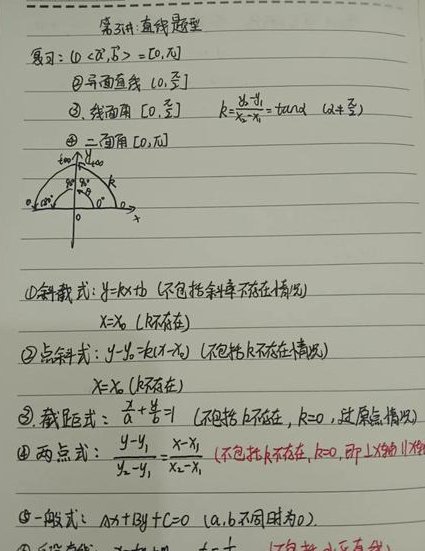 第3讲:直线题型
复习:① <a,b> = [0,π]
②异面直线 (0,π/2]
③.线面角 [0,π/2] k=(y₂-y₁)/(x₂-x₁)=tanα (α≠π/2)
④ 二面角 [0,π]
y
+∞
90° 90°
k
0 180° 0° 0
0 x
①斜截式:y=kx+b (不包括斜率不存在情况)
x=x₀ (k不存在)
②点斜式:y-y₀=k(x-x₀) (不包括k不存在情况)
x=x₀ (k不存在)
③.截距式:x/a+y/b=1 (不包括k不存在,k=0,过原点情况)
④两点式:(y-y₁)/(y₂-y₁)=(x-x₁)/(x₂-x₁) (不包括k不存在,k=0,即⊥x轴 ∥x轴
⑤一般式:Ax+By+C=0 (a,b不同时为0).